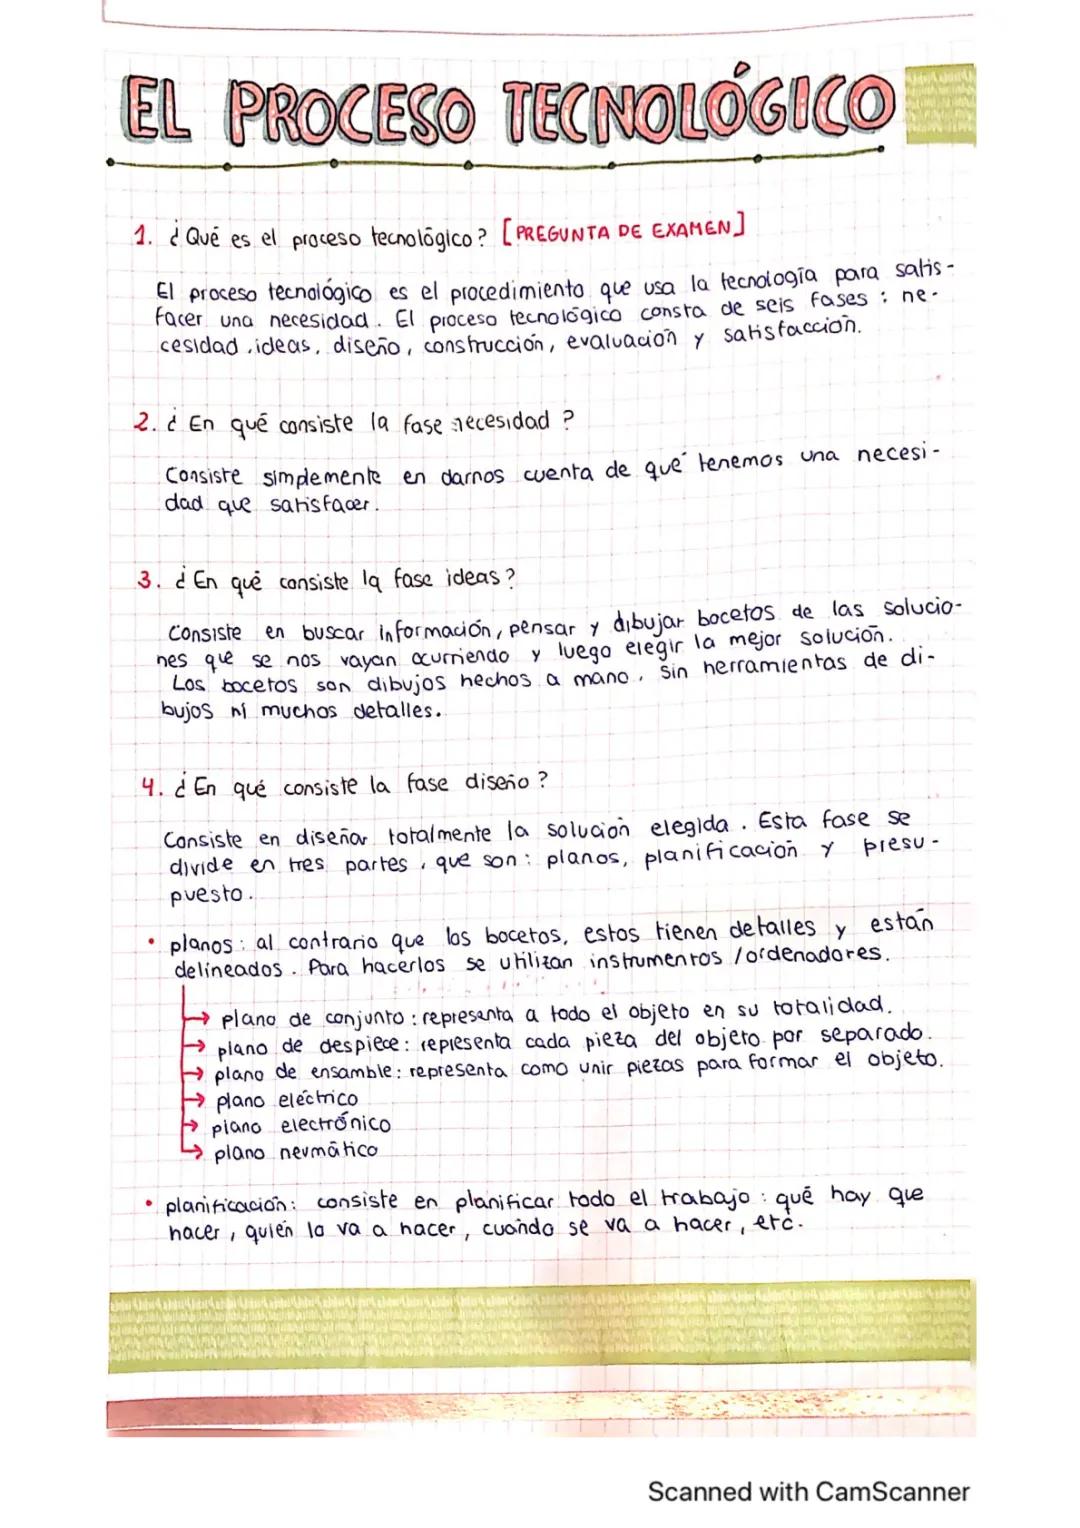 EL PROCESO TECNOLÓGICO
1. ¿Qué es el proceso tecnológico? [PREGUNTA DE EXAMEN]
El proceso tecnológico es el procedimiento que usa la tecnología para satis-
facer una necesidad. El proceso tecnológico consta de seis fases: ne-
cesidad, ideas, diseño, construcción, evaluación y satisfacción.
2. ¿En qué consiste la fase necesidad?
Consiste simplemente en darnos cuenta de qué tenemos una necesi-
dad que satisfacer.
3. ¿En qué consiste la fase ideas?
Consiste en buscar información, pensar y dibujar bocetos de las solucio-
nes que se nos vayan ocurriendo y luego elegir la mejor solución.
Los bocetos son dibujos hechos a mano, sin herramientas de di-
bujos ni muchos detalles.
4. ¿En qué consiste la fase diseño?
Consiste en diseñar totalmente la solución elegida. Esta fase se
divide en tres partes, que son: planos, planificación y presu-
puesto.
• planos: al contrario que los bocetos, estos tienen detalles y están
delineados. Para hacerlos se utilizan instrumentos /ordenadores.
→ plano de conjunto: representa a todo el objeto en su totalidad.
→ plano de despiece: representa cada pieza del objeto por separado.
→ plano de ensamble: representa como unir piezas para formar el objeto.
→ plano eléctrico
→ plano electrónico
→ plano neumático
• planificación: consiste en planificar todo el trabajo: qué hay que
hacer, quién lo va a hacer, cuándo se va a hacer, etc.
Scanned with CamScanner